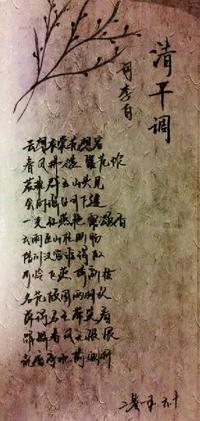 清平调
唐李白
云想衣裳花想容
春风拂槛露华浓
若非群玉山头见
会向瑶台月下逢
一枝红艳露凝香
云雨巫山枉断肠
借问汉宫谁得似
可怜飞燕倚新妆
名花倾国两相欢
常得君王带笑看
解释春风无限恨
沉香亭北倚阑干